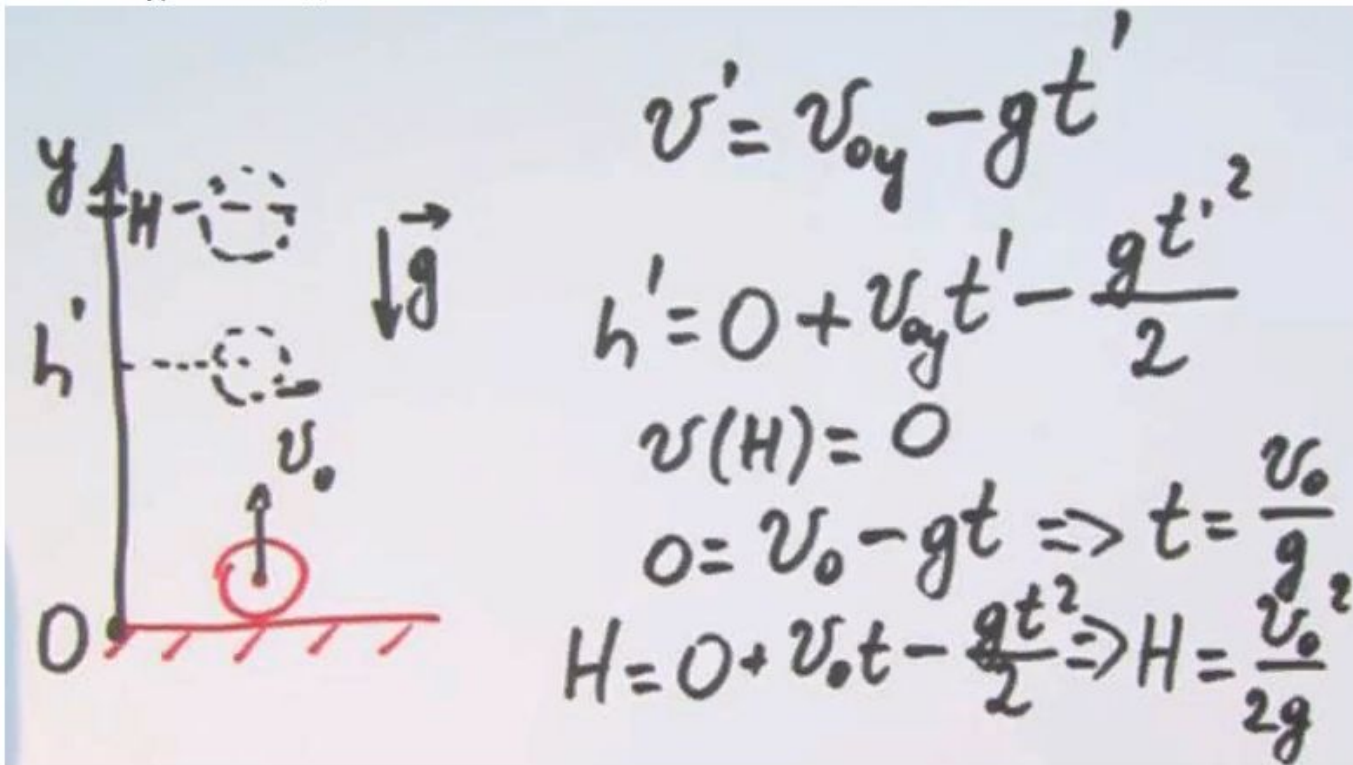 y
H
g⃗
h'
v₀
O
v' = v₀y − gt'
h' = 0 + v₀yt' − gt'²/2
v(H) = 0
0 = v₀ − gt => t = v₀/g
H = 0 + v₀t − gt²/2 => H = v₀²/2g